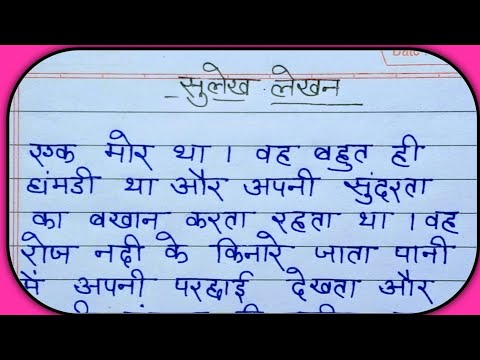 Date
सुलेख लेखन
एक मोर था । वह बहुत ही
घंमडी था और अपनी सुंदरता
का बखान करता रहता था । वह
रोज नदी के किनारे जाता पानी
में अपनी परछाई देखता और